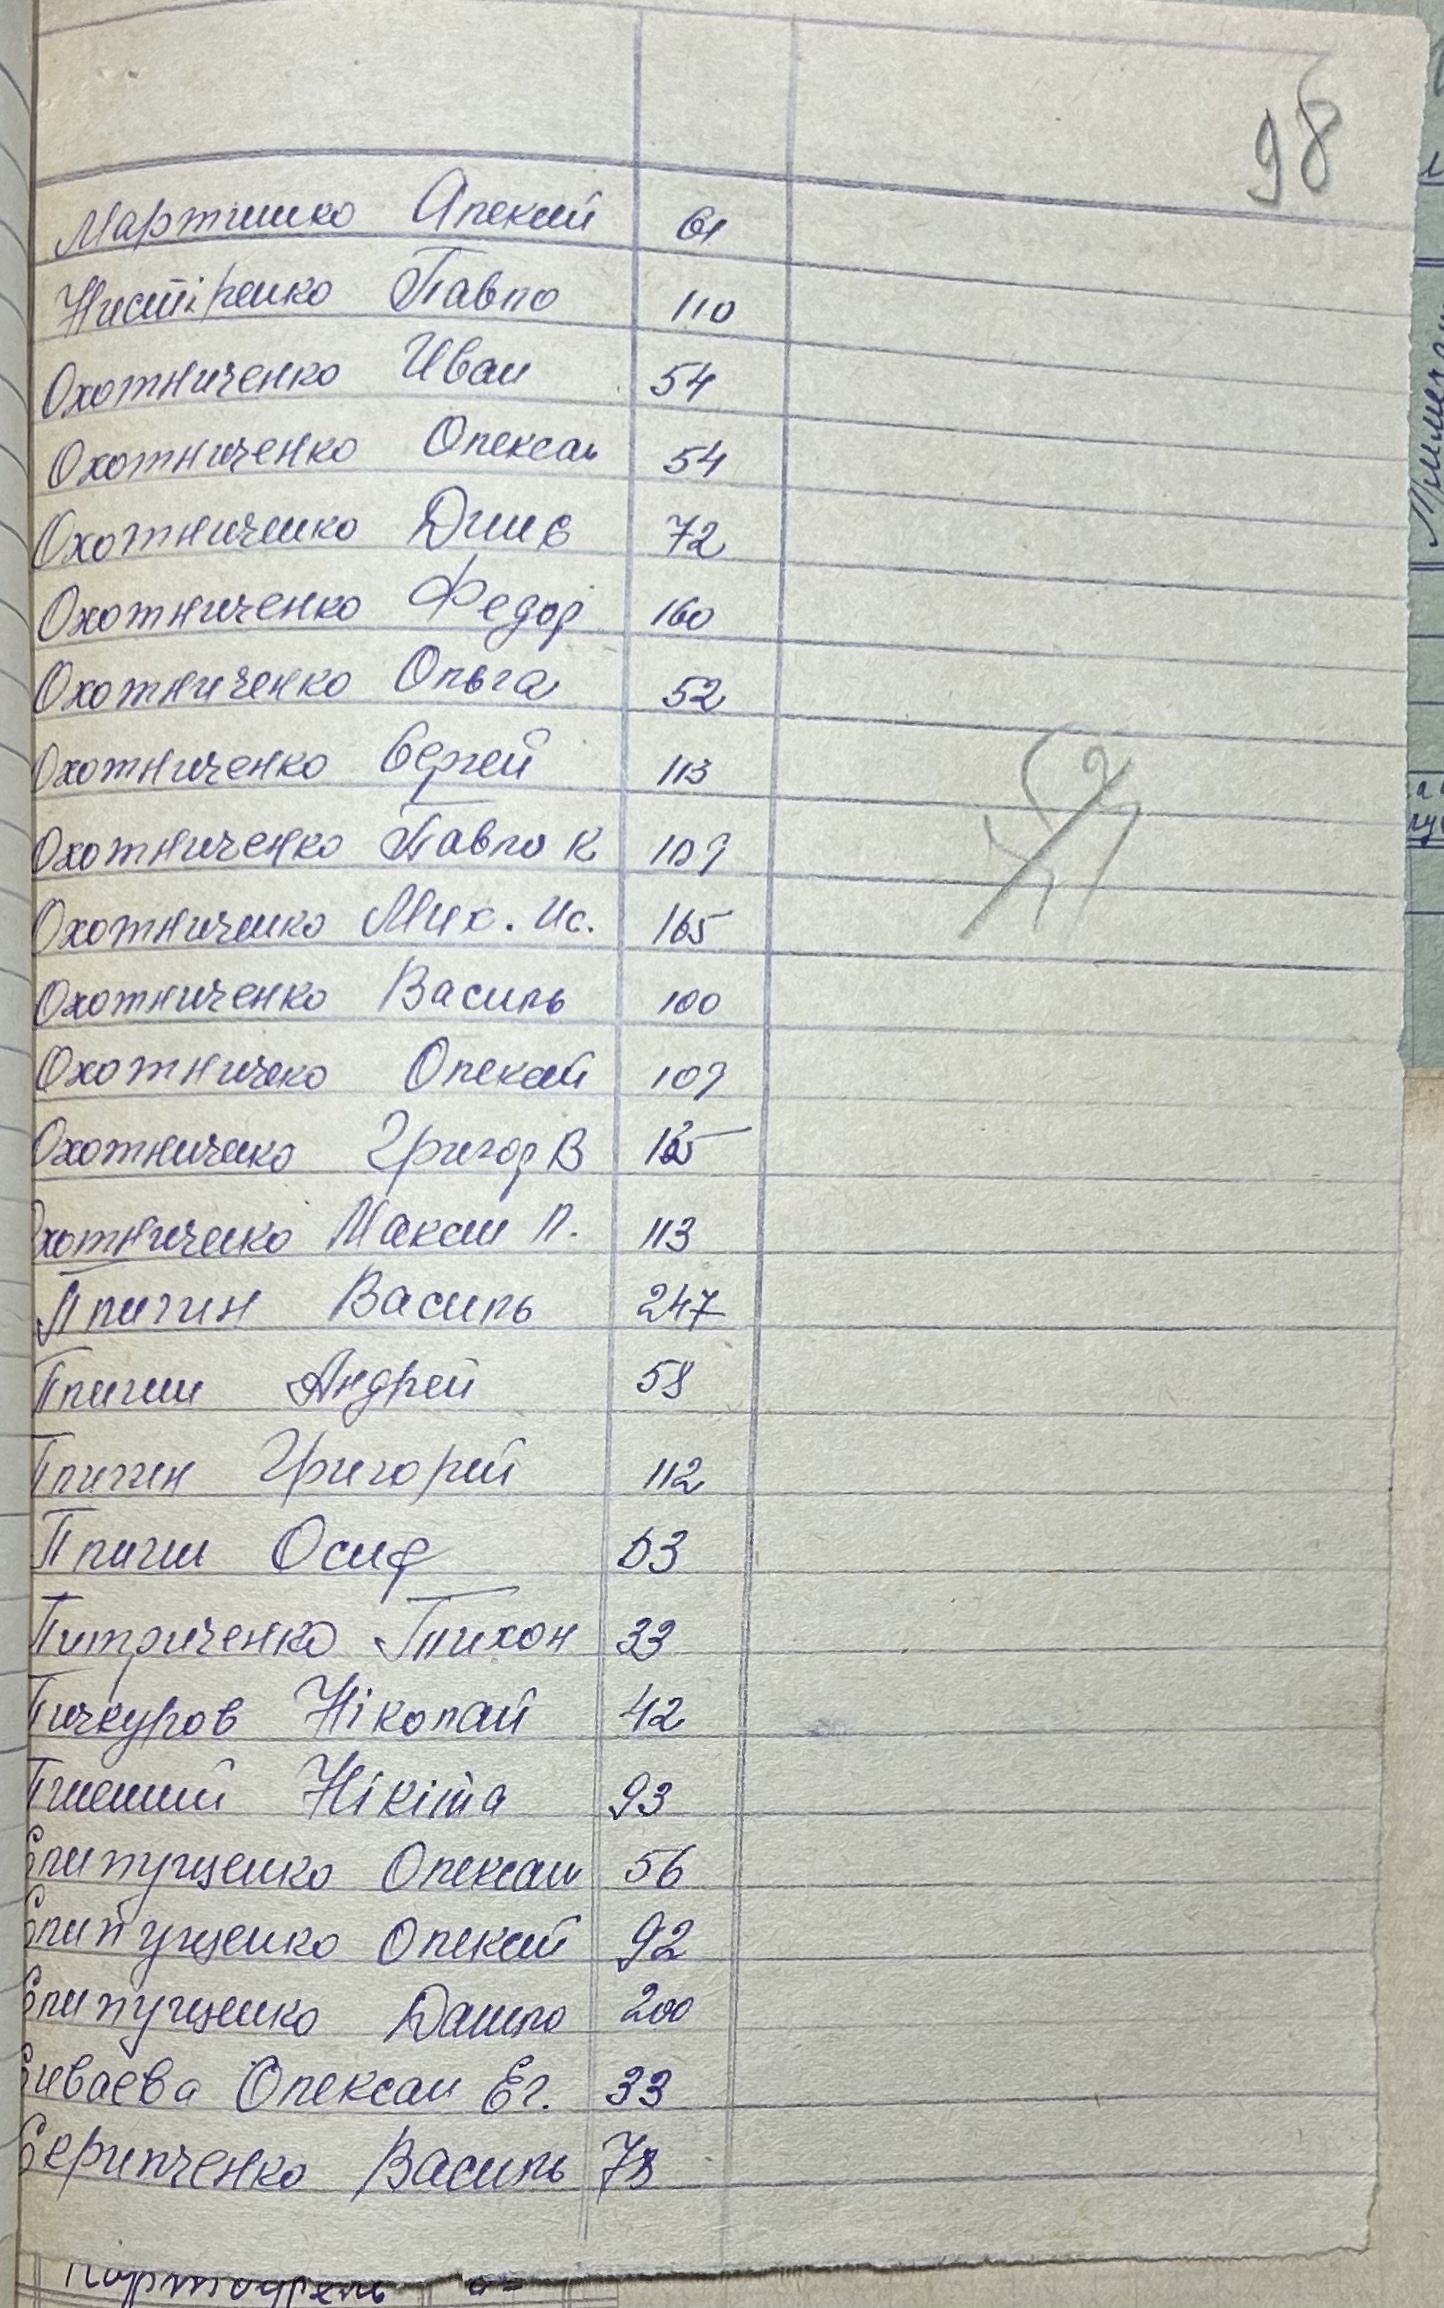 98
Мартинко Алексій 61
Нистіренко Павло 110
Охотниченко Иван 54
Охотниченко Олексан 54
Охотниченко 72
Охотниченко Федор 160
Охотниченко Ольга 52
Охотниченко Сергей 113
Охотниченко Павло К 109
Охотниченко Мих. Ис. 165
Охотниченко Василь 100
Охотничеко Олексій 109
Охотниченко Григор В
Охотниченко Максим П. 113
Плигин Василь 247
Плигин Андрей 58
Плигин Григорий 112
Плигин Осиф 53
Питриченко Тихон 33
Пичкуров Ніколай 42
Нікіта 93
Слипущенко Олексан 56
Слипущенко Олексій 92
Слипущенко Данило 200
Сиваева Олексан Ег. 33
Скрипченко Василь 78